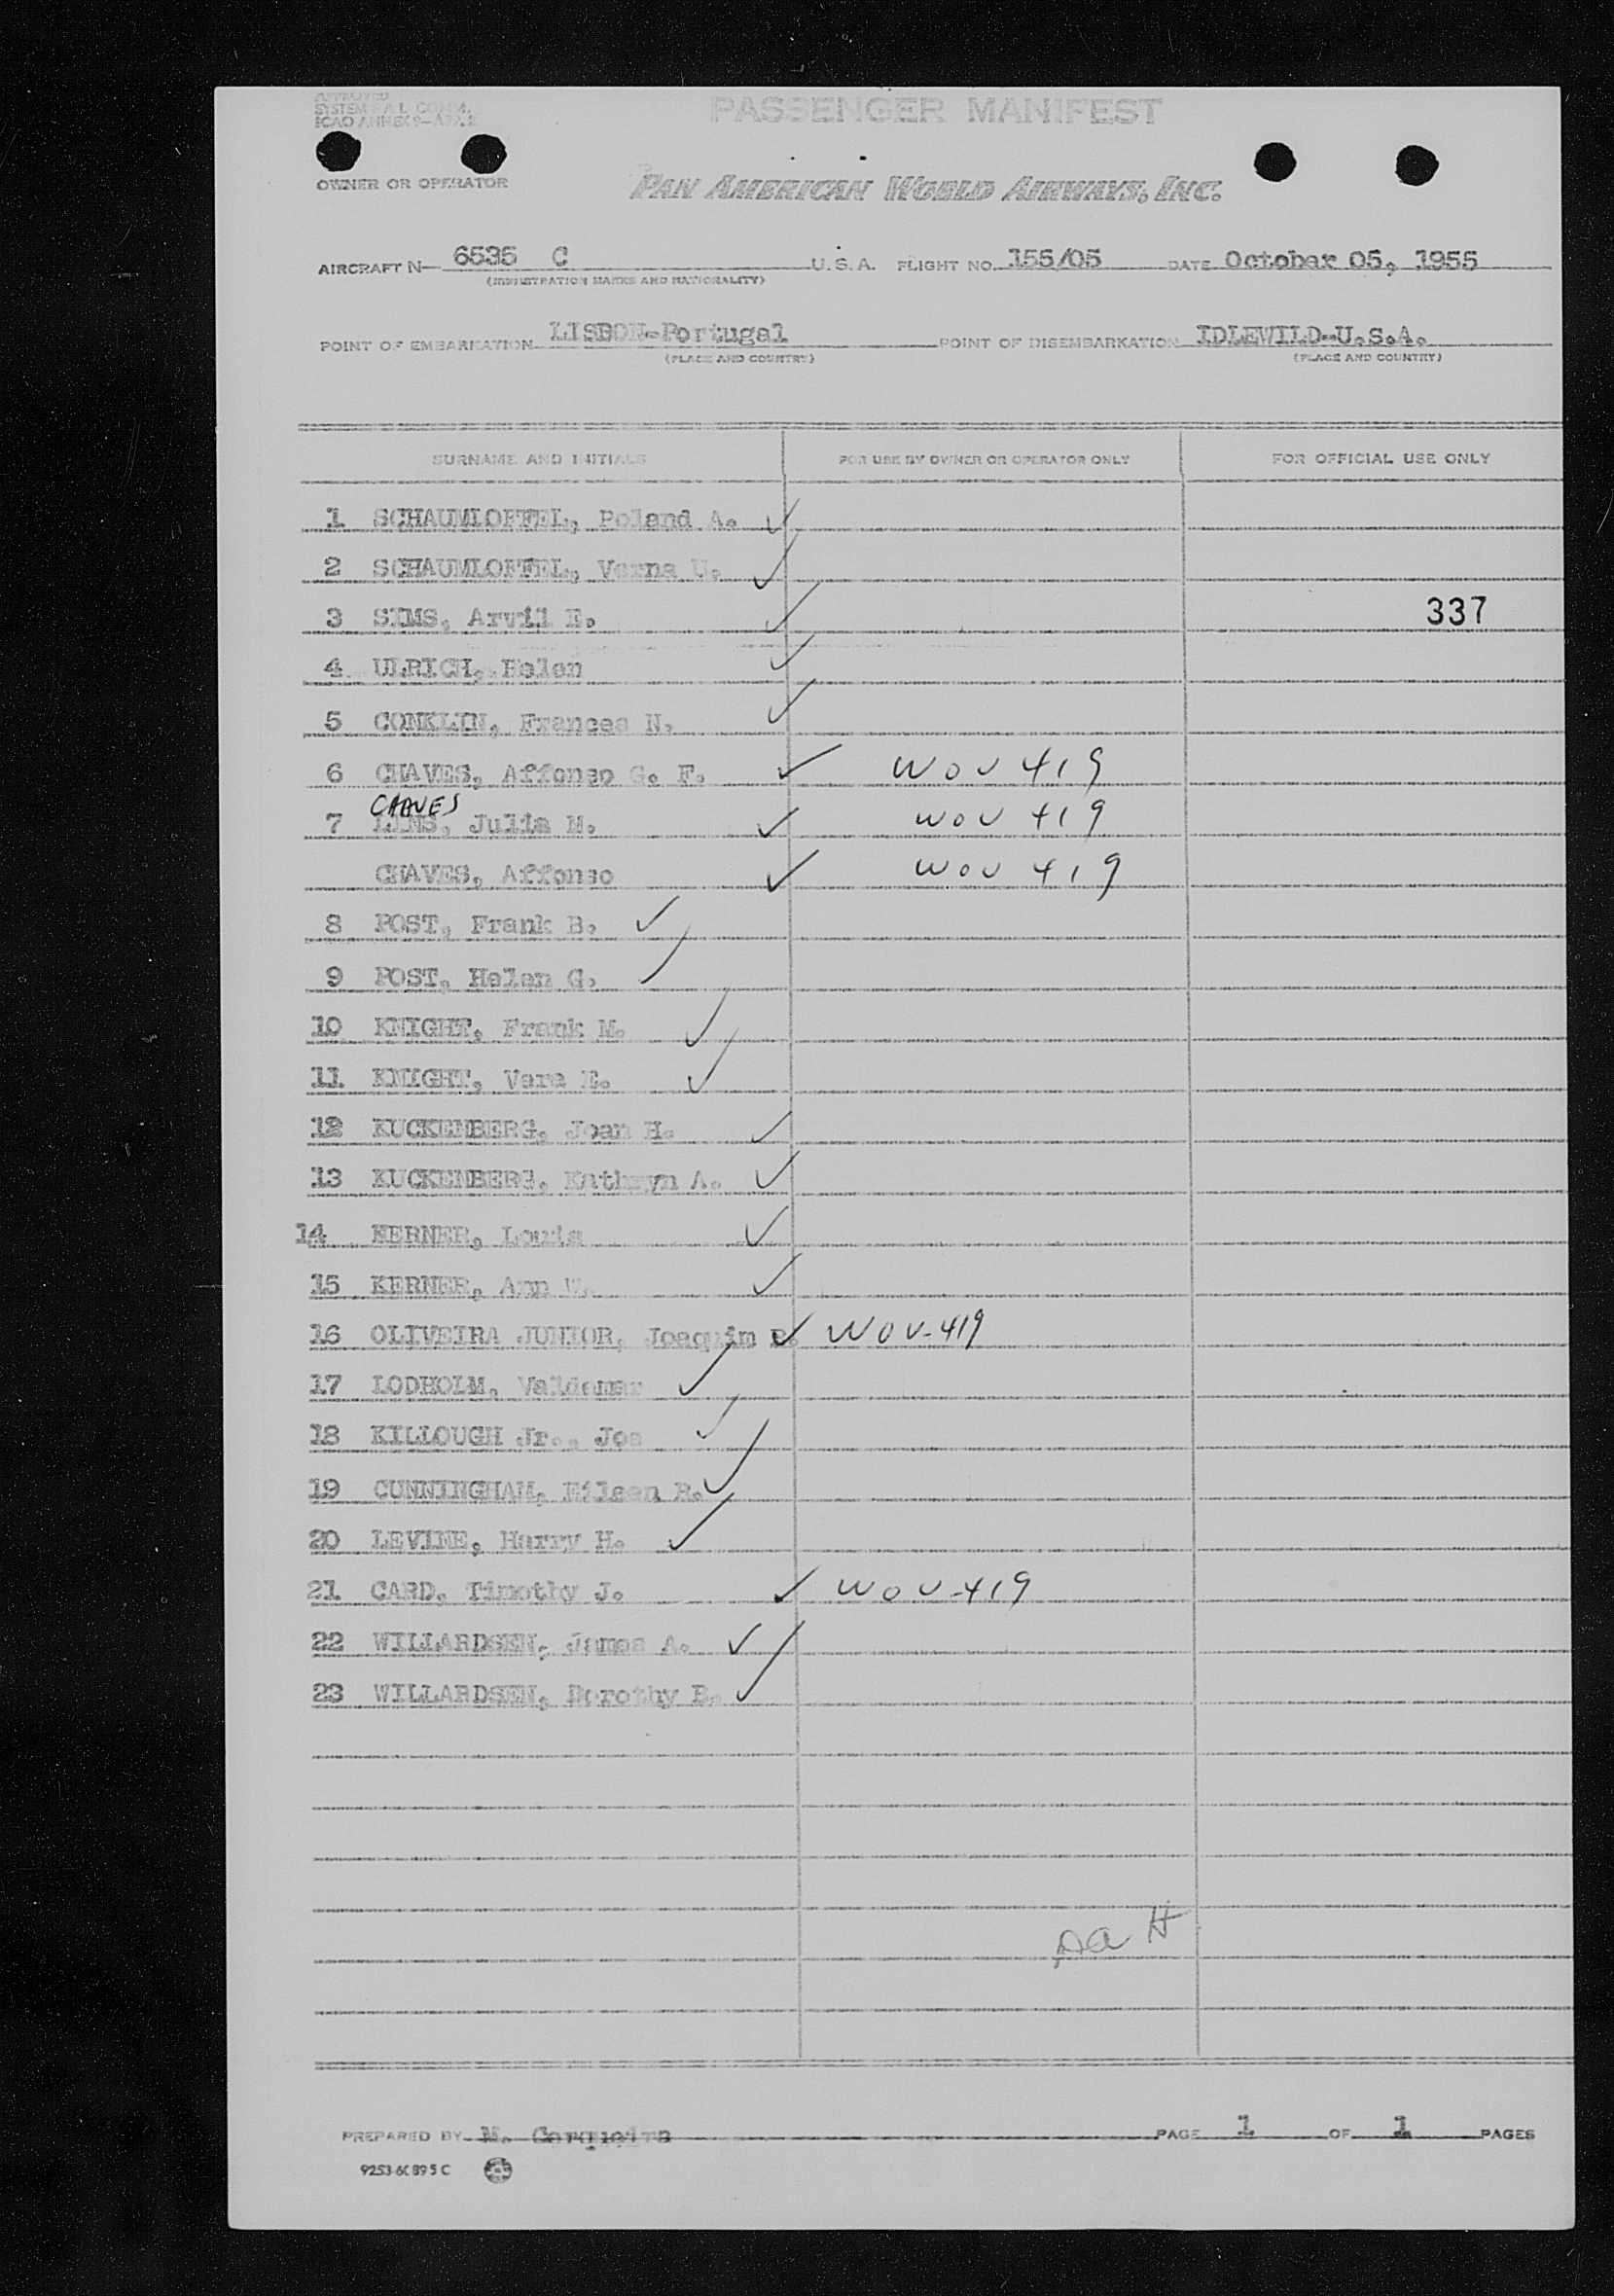 APPROVED
SYSTEM F.A.L. COMM.
ICAO ANNEX 9—
PASSENGER MANIFEST
OWNER OR OPERATOR
PAN AMERICAN WORLD AIRWAYS, INC.
AIRCRAFT N— 6535 C U.S.A. FLIGHT NO. 155/05 DATE October 05, 1955
(REGISTRATION MARKS AND NATIONALITY)
POINT OF EMBARKATION LISBON-Portugal POINT OF DISEMBARKATION IDLEWILD-U.S.A.
(PLACE AND COUNTRY) (PLACE AND COUNTRY)
SURNAME AND INITIALS FOR USE BY OWNER OR OPERATOR ONLY FOR OFFICIAL USE ONLY
1 SCHAUMLOFFEL, Roland A. ✓
2 SCHAUMLOFFEL, Verna U. ✓
3 SIMS, Arvil E. ✓ 337
4 ULRICH, Helen ✓
5 CONKLIN, Frances N. ✓
6 CHAVES, Affonso G. F. ✓ WOV 419
CHAVES
7 LIMS, Julia M. ✓ WOV 419
CHAVES, Affonso ✓ WOV 419
8 POST, Frank B. ✓
9 POST, Helen G. ✓
10 KNIGHT, Frank M. ✓
11 KNIGHT, Vera E. ✓
12 KUCKENBERG, Joan H. ✓
13 KUCKENBERG, Kathryn A. ✓
14 KERNER, Louis ✓
15 KERNER, Ann ✓
16 OLIVEIRA JUNIOR, Joaquim ✓ WOV-419
17 LODHOLM, Valdemar ✓
18 KILLOUGH Jr., Joe ✓
19 CUNNINGHAM, Eileen R. ✓
20 LEVINE, Harry H. ✓
21 CARD, Timothy J. ✓ WOV-419
22 WILLARDSEN, James A. ✓
23 WILLARDSEN, Dorothy B. ✓
PREPARED BY M. Cerqueira PAGE 1 OF 1 PAGES